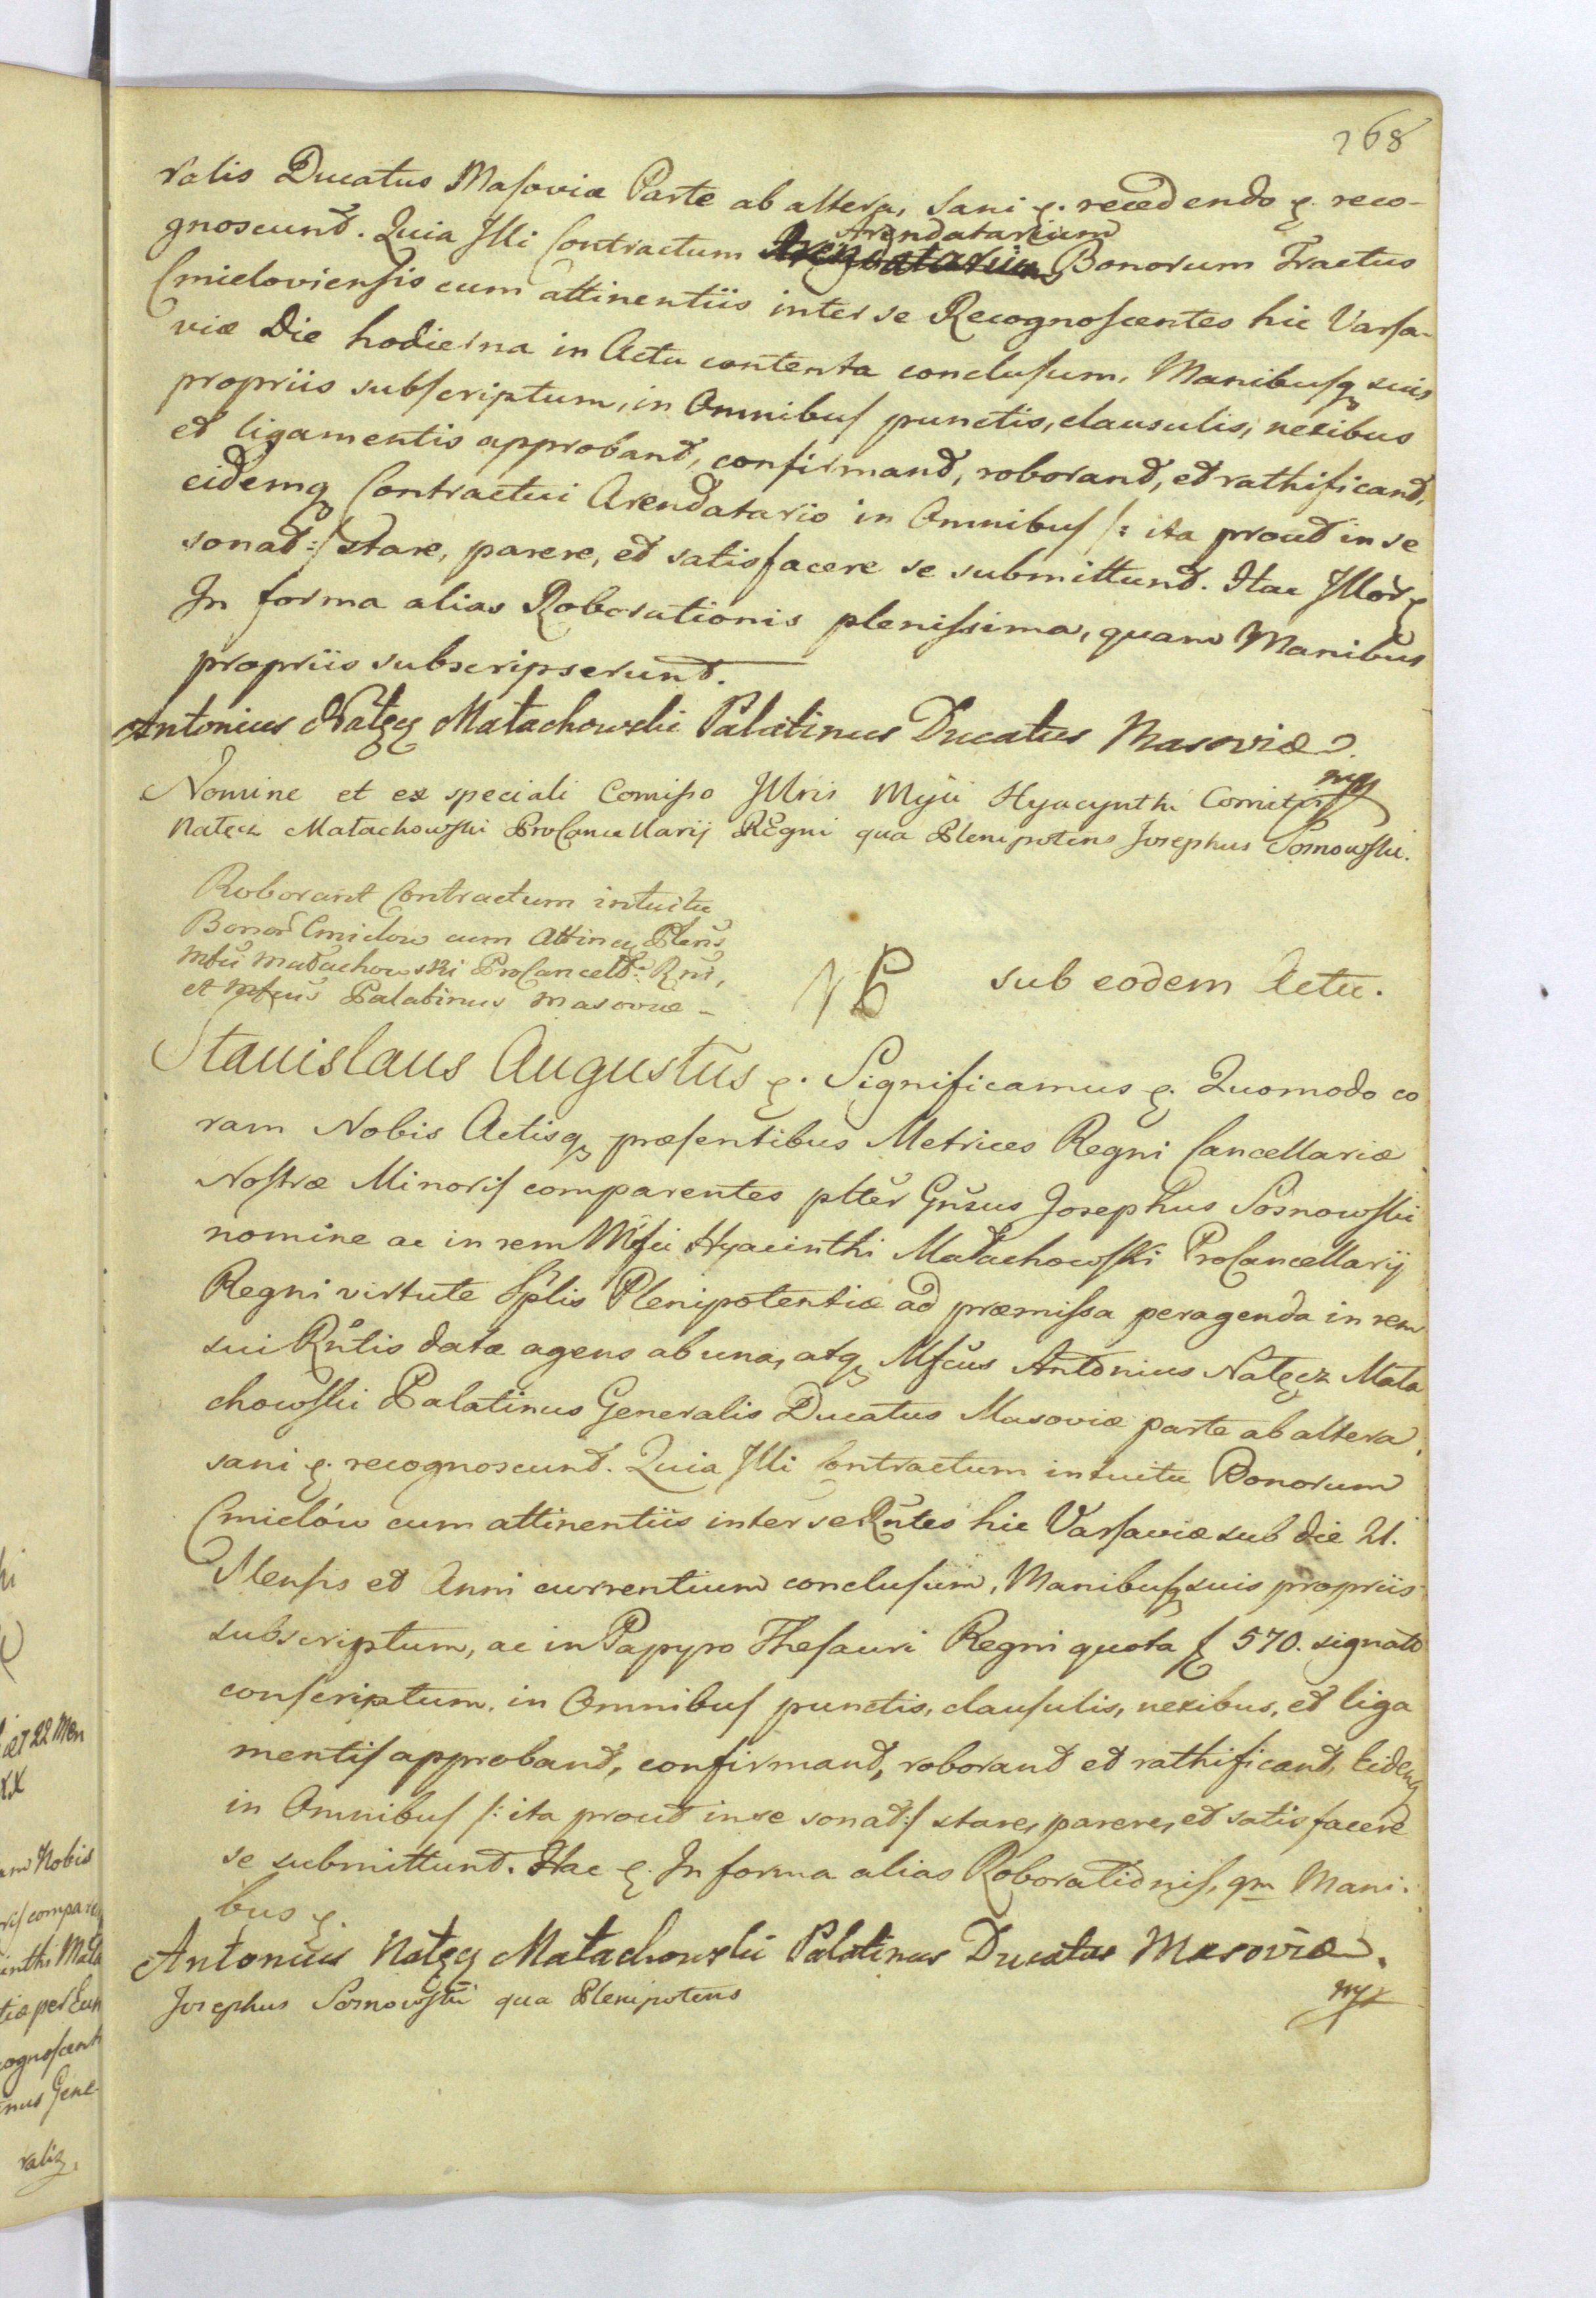 268
ralis Ducatus Masoviæ Parte ab altera, sani &. recedendo &. reco-
gnoscunt. Quia Illi Contractum Arendatarium Bonorum Tractus
Cmieloviensis cum attinentiis inter se Recognoscentes hic Varsa-
viæ Die hodierna in Actu contenta conclusum, Manibusq suis
propriis subscriptum, in Omnibus punctis, clausulis, nexibus
et ligamentis approbant, confirmant, roborant, et rathificant,
eidemq Contractui Arendatario in Omnibus /: ita prout in se
sonat :/ stare, parere, et satisfacere se submittunt. Hac Illor &
In forma alias Roborationis plenissima, quam Manibus
propriis subscripserunt.
Antonius Nałęcz Małachowski Palatinus Ducatus Masoviæ
mp
Nomine et ex speciali Comisso Illris Mgii Hyacynthi Comitis
Nałęcz Małachowski ProCancellarij Regni qua Plenipotens Josephus Sosnowski.
Roborant Contractum intuitu
Bonor Cmielow cum Attinen Plens
Mfci Małachowski ProCancell: Rni,
et Mfcus Palatinus Masoviæ -
NB sub eodem Actu.
Stanislaus Augustus &. Significamus &. Quomodo co
ram Nobis Actisq præsentibus Metrices Regni Cancellariæ
Nostræ Minoris comparentes pltter Gnsus Josephus Sosnowski
nomine ac in rem Mfci Hyacinthi Małachowski ProCancellarij
Regni virtute Splis Plenipotentiæ ad præmissa peragenda in rem
sui Rntis datæ agens ab una, atq Mfcus Antonius Nałęcz Mała
chowski Palatinus Generalis Ducatus Masoviæ parte ab altera,
sani &. recognoscunt. Quia Illi Contractum intuitu Bonorum
Cmielów cum attinentiis inter se Rntes hic Varsaviæ sub die 21.
Mensis et Anni currentium conclusum, Manibusq suis propriis
subscriptum, ac in Papyro Thesauri Regni quota f 570. signato
conscriptum, in Omnibus punctis, clausulis, nexibus, et liga
mentis approbant, confirmant, roborant et rathificant, Eidemq
in Omnibus /: ita prout in se sonat :/ stare, parere, et satisfacere
se submittunt. Hac &. In forma alias Roborationis, qm Mani.
bus &.
Antonius Nałęcz Małachowski Palatinus Ducatus Masoviæ.
mp
Josephus Sosnowski qua Plenipotens
et 22 Men
Nobis
Gene-
ralis,